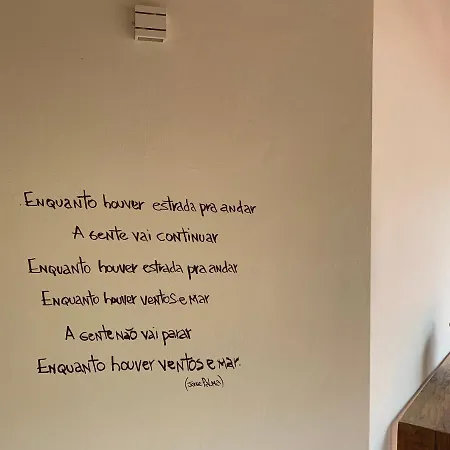 Enquanto houver estrada pra andar
A gente vai continuar
Enquanto houver estrada pra andar
Enquanto houver ventos e mar
A gente não vai parar
Enquanto houver ventos e mar.
(Jorge Palma)